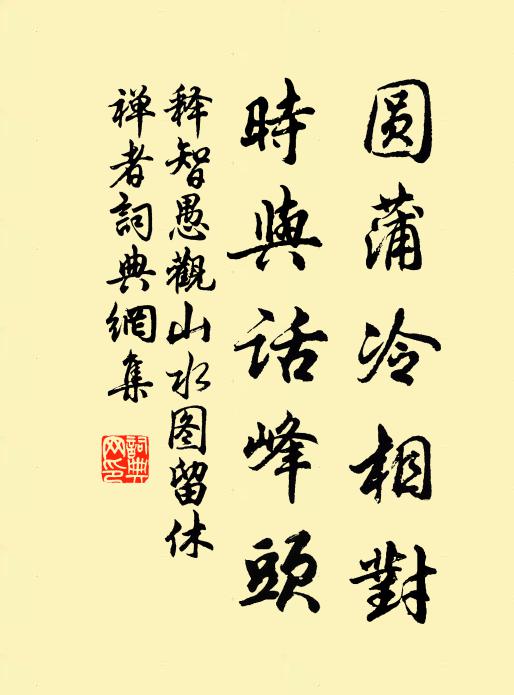 圆蒲冷相對
時與话峰頭
释智愚觀山水图留休
禅者詞典網集
詞典
网印